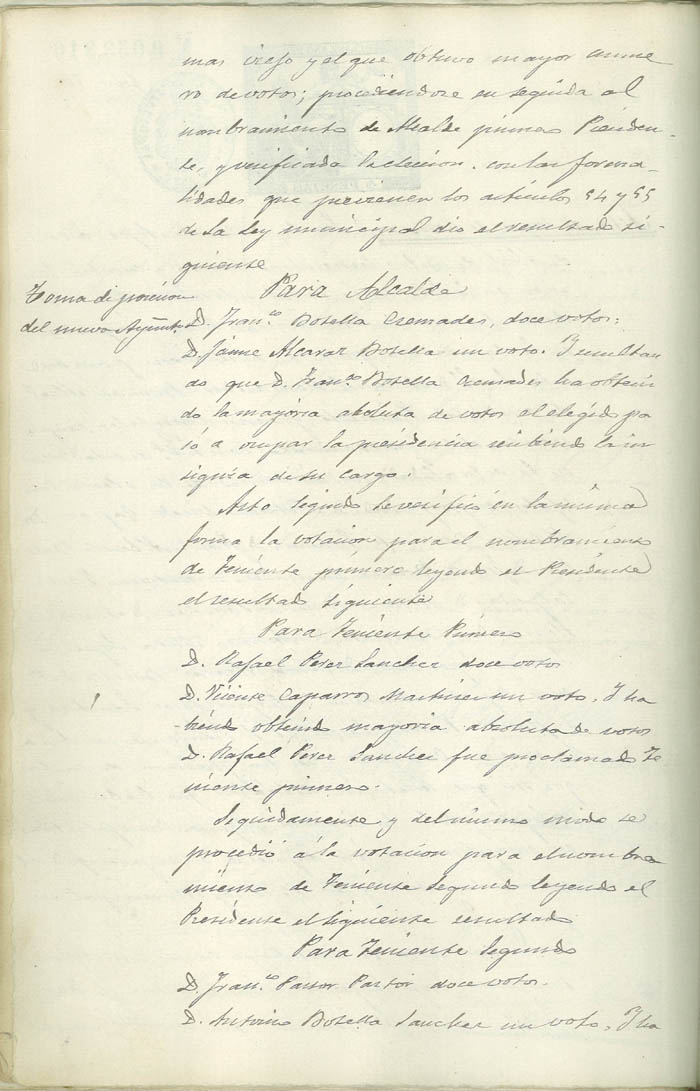 mas viejo y el que obtuvo mayor nume
ro de votos; procediendose en seguida al
nombramiento de Alcalde primero Presiden-
te, y verificada la eleccion con las forma-
lidades que previenen los articulos 54 y 55
de la Ley municipal dio el resultado si-
guiente
Para Alcalde
Toma de posesion
del nuevo Ayunto.
D. Franco. Botella Cremades, doce votos:
D. Jaime Alcaraz Botella un voto. Y resultan
do que D. Franco. Botella Cremades ha obteni
do la mayoria absoluta de votos el elegido pa
só a ocupar la presidencia recibiendo la in
signia de su cargo.
Acto seguido se verificó en la misma
forma la votacion para el nombramiento
de Teniente primero leyendo el Presidente
el resultado siguiente
Para Teniente Primero
D. Rafael Perez Sanchez doce votos
D. Vicente Caparros Martinez un voto. Y ha
biendo obtenido mayoria absoluta de votos
D. Rafael Perez Sanchez fue proclamado Te
niente primero.
Seguidamente y del mismo modo se
procedió á la votacion para el nombra
miento de Teniente segundo leyendo el
Presidente el siguiente resultado
Para Teniente Segundo
D. Franco. Pastor Pastor doce votos.
D. Antonio Botella Sanchez un voto. Y ha